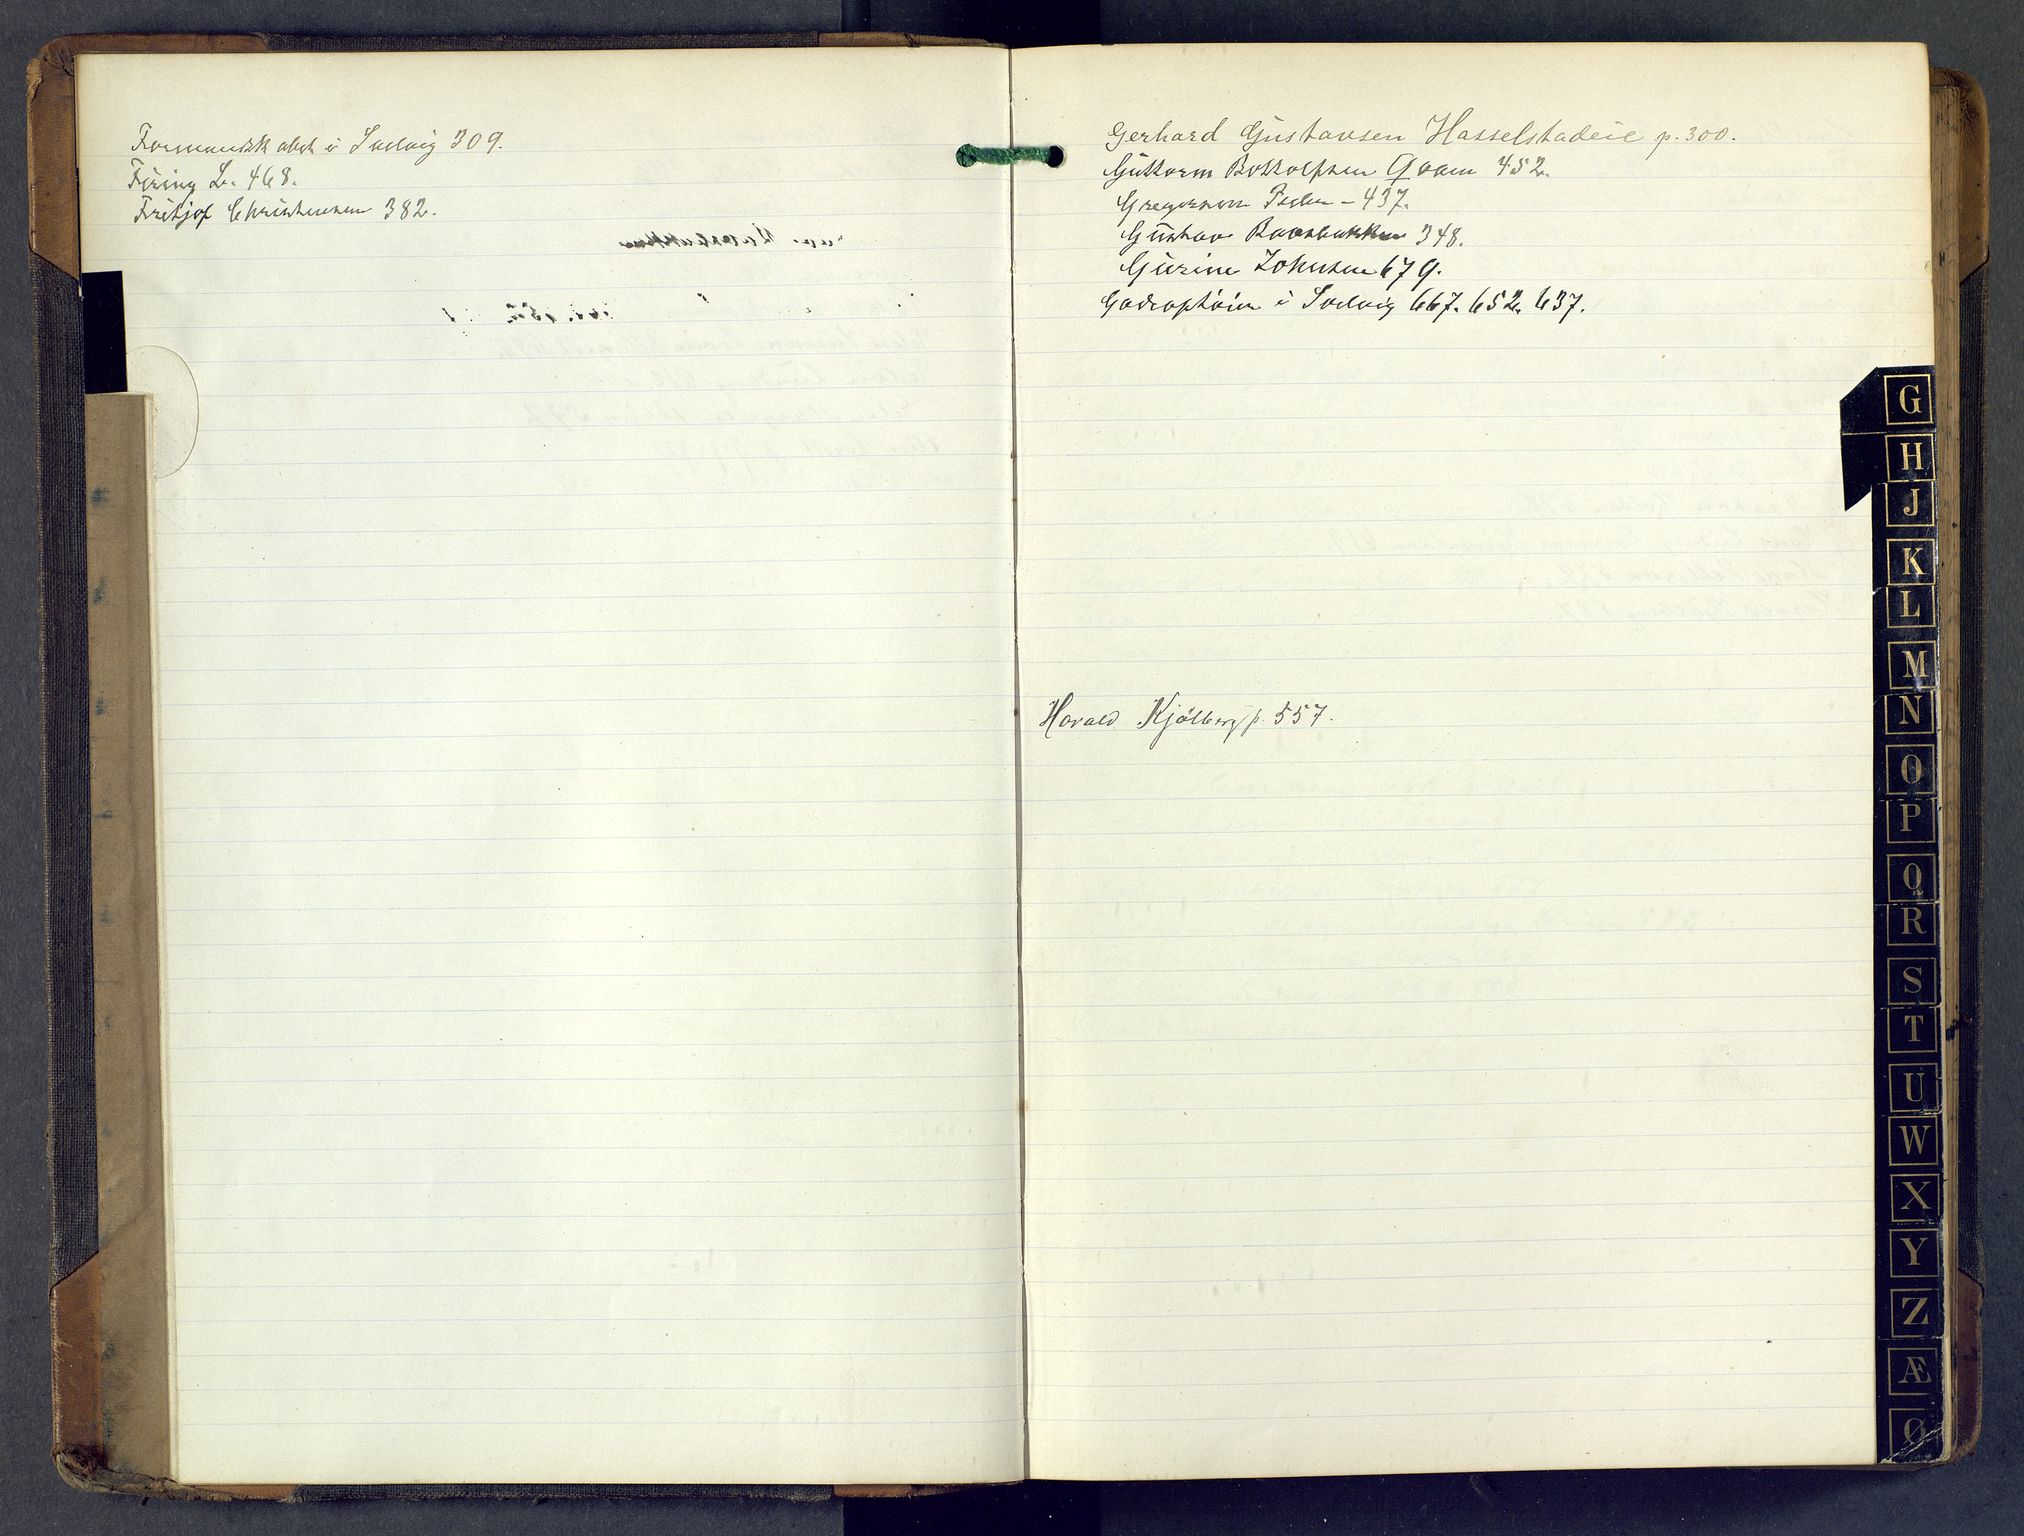 Formandskabet i Svelvig 309.
Firing L. 468.
Fritjof Christensen 382.
Gerhard Gustavsen Hasselstadeie p. 300.
Guttorm Bottolfsen Qvam 452.
Gregersen Peder - 437.
Gustav 348.
Gurine Johnsen 679.
i Svelvig 667. 652. 637.
Harald Kjölberg p. 557.
G
H
J
K
L
M
N
O
P
Q
R
S
T
U
W
X
Y
Z
Æ
Ø